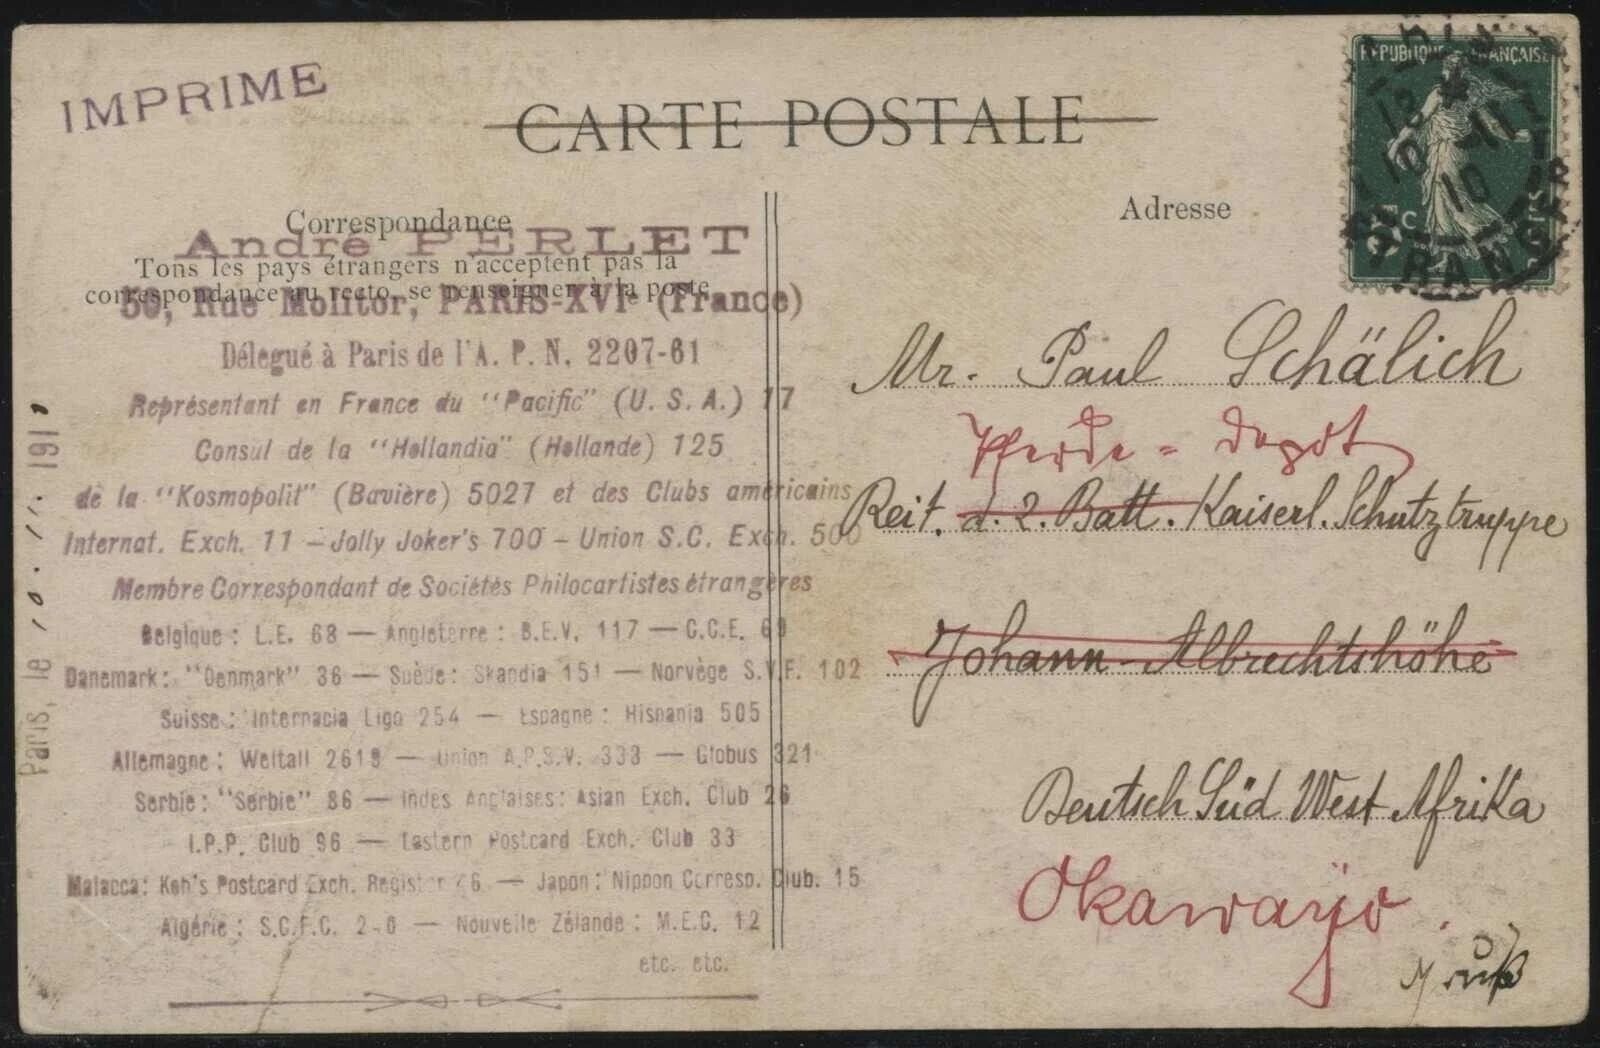 IMPRIME
CARTE POSTALE
REPUBLIQUE FRANÇAISE
13
10 -11
10
ETRANGER
5 c
Correspondance
André PERLET
Tous les pays étrangers n'acceptent pas la
correspondance au recto, se renseigner à la poste
50, Rue Molitor, PARIS-XVIe (France)
Délegué à Paris de l'A. P. N. 2207-61
Représentant en France du "Pacific" (U. S. A.) 17
Consul de la "Hollandia" (Hollande) 125
de la "Kosmopolit" (Bavière) 5027 et des Clubs américains
Internat. Exch. 11 – Jolly Joker's 700 – Union S.C. Exch. 500
Membre Correspondant de Sociétés Philocartistes étrangères
Belgique : L.E. 68 — Angleterre : B.E.V. 117 — C.C.E. 69
Danemark : "Denmark" 36 — Suède : Skandia 151 — Norvège S.V.F. 102
Suisse : Internacia Ligo 254 — Espagne : Hispania 505
Allemagne : Weltall 2619 — Union A.P.S.V. 333 — Globus 321
Serbie : "Serbie" 86 — Indes Anglaises : Asian Exch. Club 26
I.P.P. Club 96 — Eastern Postcard Exch. Club 33
Malacca : Koh's Postcard Exch. Register 46 — Japon : Nippon Corresp. Club. 15
Algérie : S.C.F.C. — Nouvelle Zélande : M.E.C. 12
etc. etc.
Paris, le 10. 11. 1910
Adresse
Mr. Paul Schälich
Pferde = Depot
Reit. d. 2. Batt. Kaiserl. Schutztruppe
Johann-Albrechtshöhe
Deutsch Süd West Afrika
Okawayo.